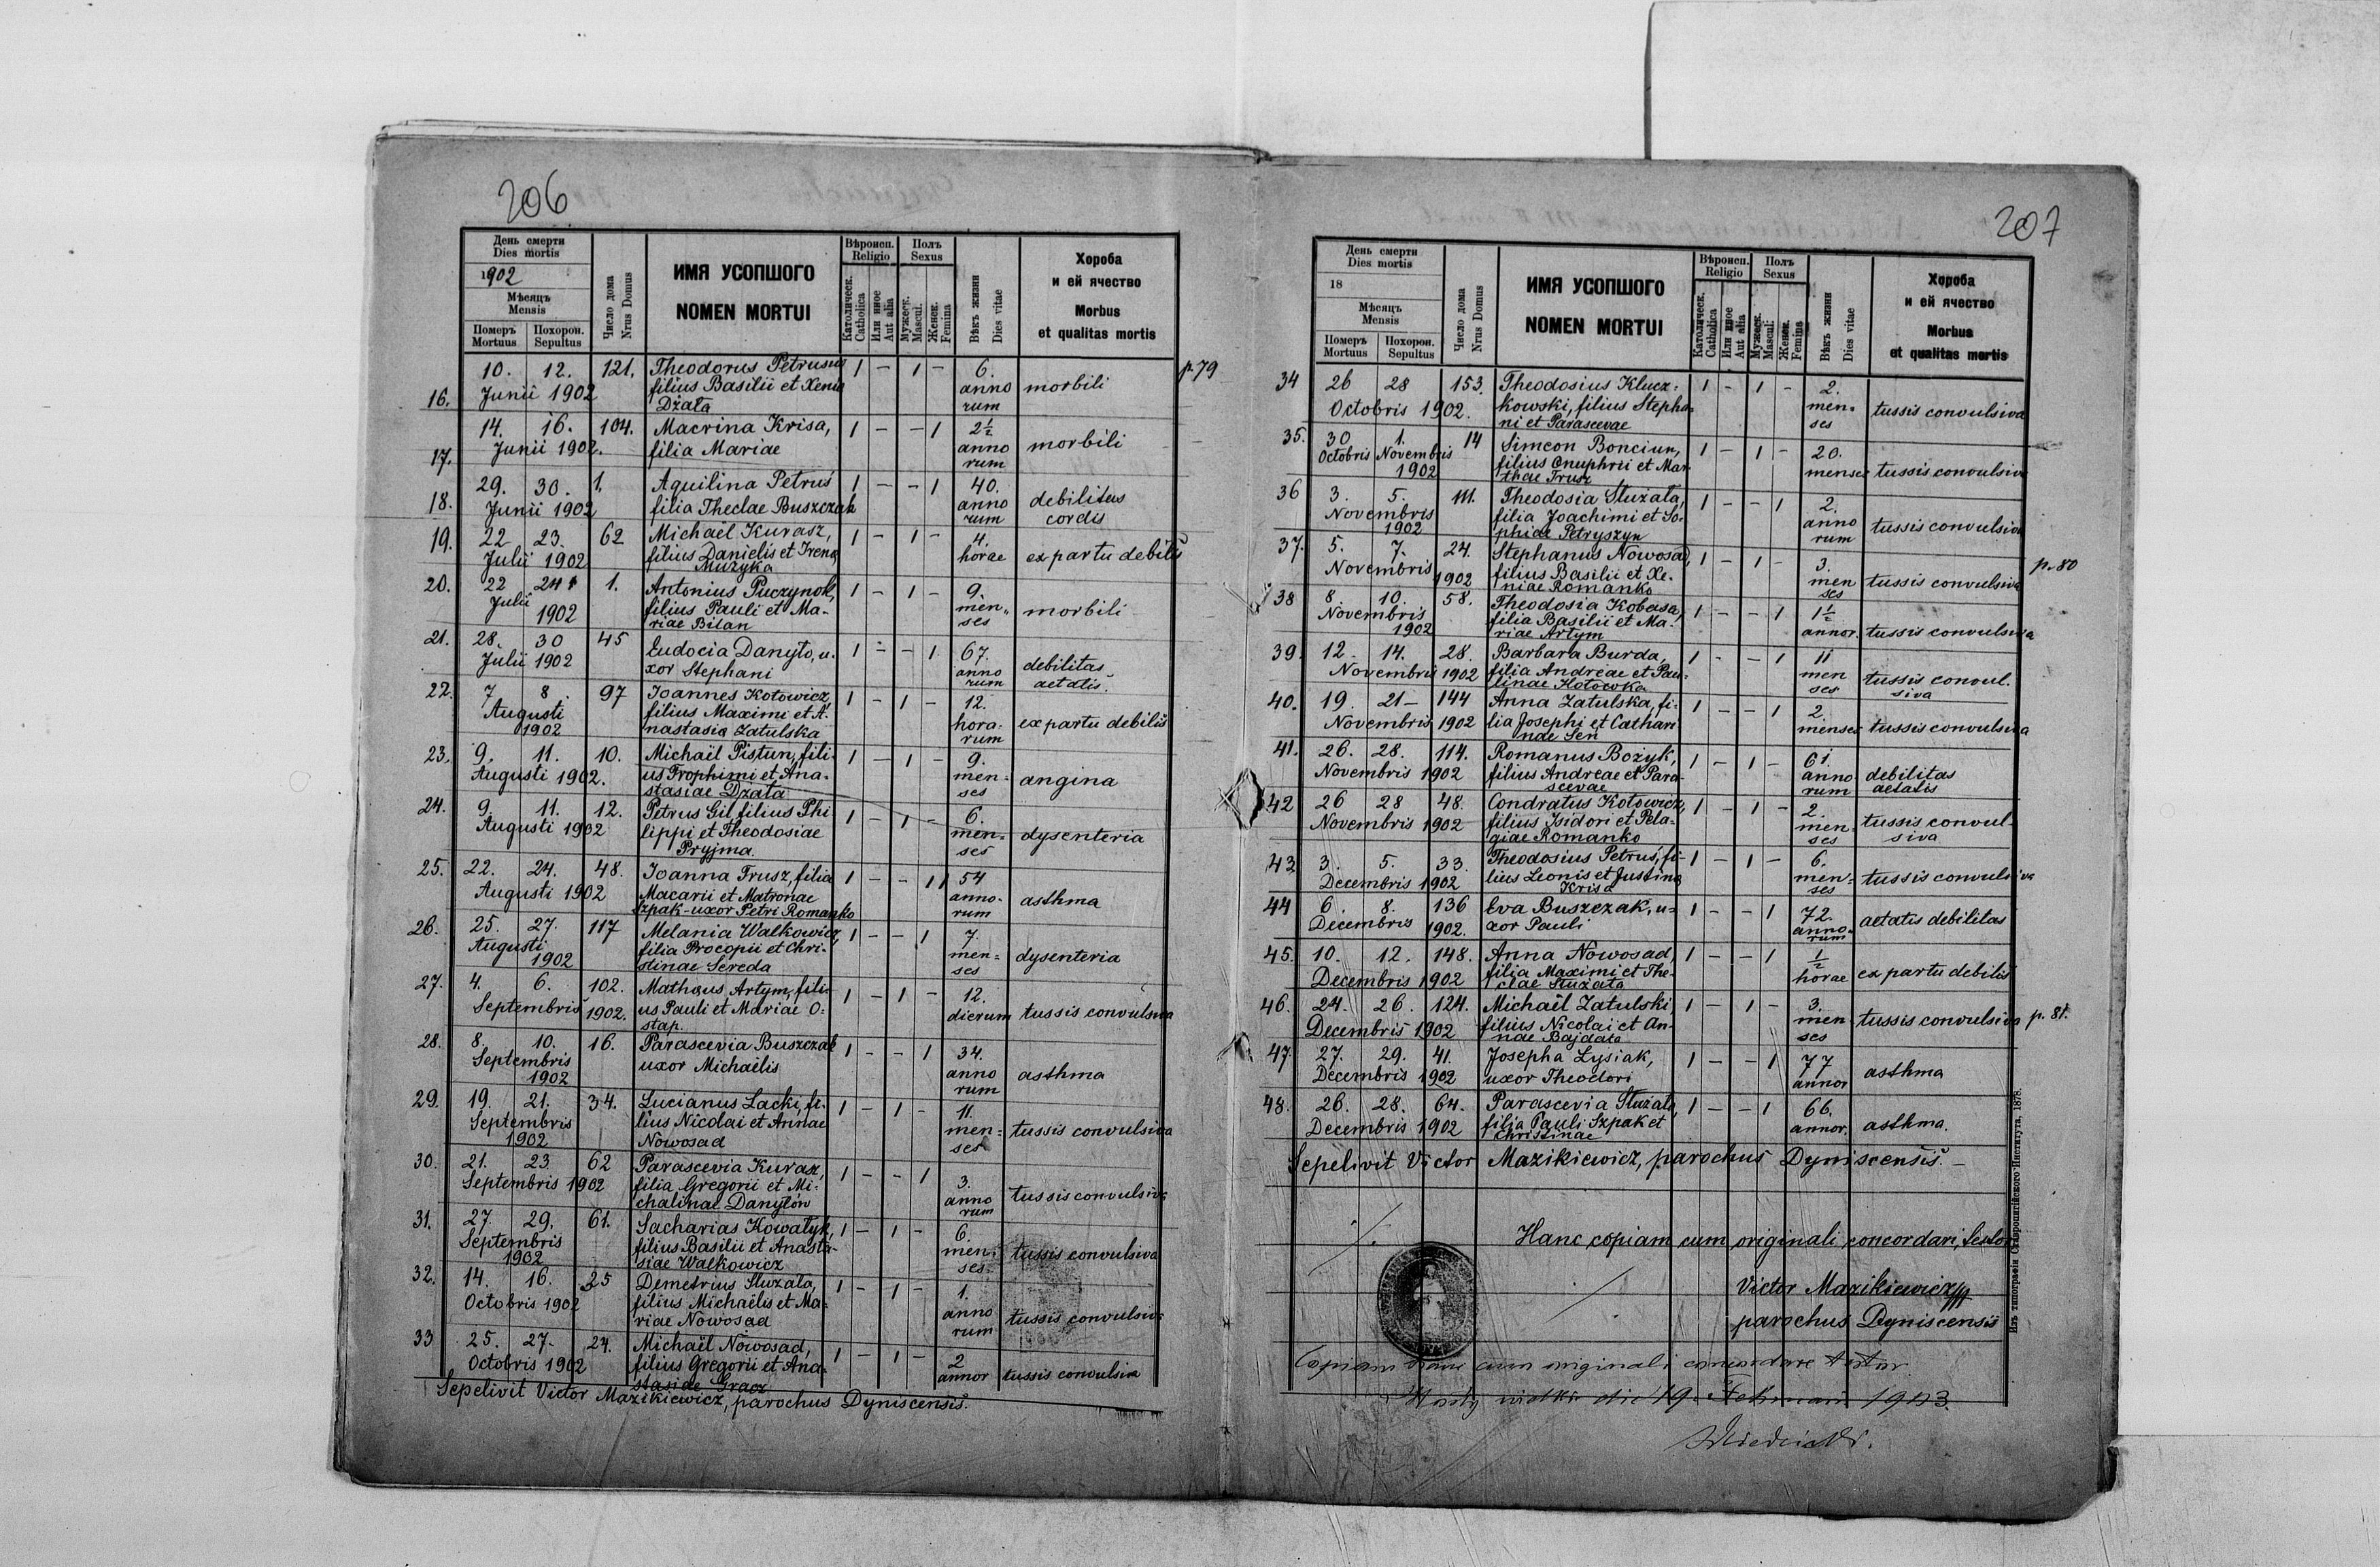 206
День смерти
Dies mortis
1902
Мѣсяцъ
Mensis
Померъ
Mortuus
Похорон.
Sepultus
Число дома
Nrus Domus
ИМЯ УСОПШОГО
NOMEN MORTUI
Вѣроисп.
Religio
Католическ.
Catholica
Или иное
Aut alia
Полъ
Sexus
Мужеск.
Mascul.
Женск.
Femina
Вѣкъ жизни
Dies vitae
Хороба
и ей ячество
Morbus
et qualitas mortis
10. 12. 121. Theodorus Petrusus 1 – 1 – 6. p. 79
Junii 1902 filius Basilii et Xenia anno morbili
16. Dżała rum
14. 16. 104. Macrina Krisa, 1 – – 1 2½
Junii 1902. filia Mariae anno morbili
17. rum
29. 30. 1. Aquilina Petruś 1 – – 1 40.
18. Junii 1902 filia Theclae Buszczak anno debilitas
rum cordis
19. 22 23. 62 Michaël Kurasz, 1 – 1 – 4.
Julii 1902 filius Danielis et Irena horae ex partu debilis
Muzyka
20. 22 24 1. Antonius Puczynok, 1 – 1 – 9.
Julii filius Pauli et Ma- men- morbili
1902 riae Bilan ses
21. 28. 30 45 Eudocia Danyło, u- 1 – – 1 67.
Julii 1902 xor Stephani anno debilitas
rum aetatis.
22. 7 8. 97 Joannes Kotowicz, 1 – 1 – 12.
Augusti filius Maximi et A- hora- ex partu debilis
1902 nastasia Zatulska rum
23. 9. 11. 10. Michaël Pistun, fili- 1 – 1 – 9.
Augusti 1902. us Trophimi et Ana- men- angina
stasiae Dżała ses
24. 9. 11. 12. Petrus Gil, filius Phi 1 – 1 – 6.
Augusti 1902 lippi et Theodosiae men- dysenteria
Pryjma. ses
25. 22. 24. 48. Joanna Trusz, filia 1 – – 1 1 54
Augusti 1902 Macarii et Matronae anno- asthma
Szpak-uxor Petri Romanko rum
26. 25. 27. 117 Melania Walkowicz, 1 – – 1 7.
Augusti filia Procopii et Chri- men- dysenteria
1902 stinae Sereda ses
27. 4. 6. 102. Mathaus Artym, fili- 1 – 1 – 12.
Septembris 1902. us Pauli et Mariae O- dierum tussis convulsiva
stap.
28. 8. 10. 16. Parascevia Buszczak 1 – – 1 34.
Septembris uxor Michaëlis anno asthma
1902 rum
29. 19. 21. 34. Lucianus Lacki, fi- 1 – 1 – 11.
Septembris lius Nicolai et Annae men- tussis convulsiva
1902 Nowosad ses
30. 21. 23. 62 Parascevia Kurasz, 1 – – 1 3.
Septembris 1902 filia Gregorii et Mi- anno tussis convulsiva
chalinae Danyłów rum
31. 27. 29. 61. Sacharias Kowalyk, 1 – 1 – 6.
Septembris filius Basilii et Anasta- men- tussis convulsiva
1902 siae Walkowicz ses.
32. 14. 16. 25 Demetrius Słuzała, 1 – 1 – 1.
Octobris 1902 filius Michaëlis et Ma- anno tussis convulsiva
riae Nowosad rum
33 25. 27. 24. Michaël Nowosad, 1 – 1 – 2
Octobris 1902 filius Gregorii et Ana- annor tussis convulsiva
stasiae Gracz
Sepelivit Victor Mazikiewicz, parochus Dyniscensis.
207
День смерти
Dies mortis
18
Мѣсяцъ
Mensis
Померъ
Mortuus
Похорон.
Sepultus
Число дома
Nrus Domus
ИМЯ УСОПШОГО
NOMEN MORTUI
Вѣроисп.
Religio
Католическ.
Catholica
Или иное
Aut alia
Полъ
Sexus
Мужеск.
Mascul.
Женск.
Femina
Вѣкъ жизни
Dies vitae
Хороба
и ей ячество
Morbus
et qualitas mortis
34 26 28 153. Theodosius Klucz- 1 – 1 – 2.
Octobris 1902. kowski, filius Stepha- men- tussis convulsiva
ni et Parascevae ses
35. 30 1. 14 Simeon Bonciun, 1 – 1 – 20.
Octobris Novembris filius Onuphrii et Mar menses tussis convulsiva
1902 thae Trusz
36 3. 5. 111. Theodosia Słuzała, 1 – – 1 2.
Novembris filia Joachimi et So- anno tussis convulsiva
1902 phiae Petryszyn rum
37. 5. 7. 24. Stephanus Nowosad, 1 – 1 – 3. p. 80
Novembris 1902 filius Basilii et Xe- men tussis convulsiva
niae Romanko ses
38 8. 10. 58. Theodosia Kobasa, 1 – – 1 1½
Novembris filia Basilii et Ma- annor. tussis convulsiva
1902 riae Artym
39. 12. 14. 28. Barbara Burda, 1 – – 1 11
Novembris 1902 filia Andreae et Pau- men tussis convul-
linae Kotowka ses siva
40. 19. 21– 144 Anna Zatulska, fi- 1 – – 1 2.
Novembris 1902 lia Josephi et Cathari menses tussis convulsiva
nae Sen
41. 26. 28. 114. Romanus Bożyk, 1 – 1 – 61.
Novembris 1902 filius Andreae et Para- anno debilitas
scevae rum aetatis
42 26 28 48. Condratus Kotowicz, 1 – 1 – 2.
Novembris 1902 filius Isidori et Pela- men- tussis convul-
giae Romanko ses siva
43. 3. 5. 33. Theodosius Petruś, fi- 1 – 1 – 6.
Decembris 1902 lius Leonis et Justina men- tussis convulsiva
Krisa ses
44 6. 8. 136 Eva Buszczak, u- 1 – – 1 72.
Decembris 1902. xor Pauli anno- aetatis debilitas
rum
45. 10. 12. 148. Anna Nowosad, 1 – – 1 ½
Decembris 1902 filia Maximi et The- horae ex partu debilis
clae Słuzała
46. 24. 26. 124. Michaël Zatulski, 1 – 1 – 3.
Decembris 1902 filius Nicolai et An- men tussis convulsiva p. 81.
nae Bajdała ses
47. 27. 29. 41. Josepha Łysiak, 1 – – 1 77
Decembris 1902 uxor Theodori annor asthma
48. 26. 28. 64. Parascevia Słuzała, 1 – – 1 66.
Decembris 1902 filia Pauli Szpak et annor. asthma.
Christinae
Sepelivit Victor Mazikiewicz, parochus Dyniscensis. –
Hanc copiam cum originali concordari, testor
Victor Mazikiewicz
parochus Dyniscensis
Copiam hanc cum originali concordare testor
die 19. Februarii 1903.
Изъ типографіи Ставропигійского Института, 1878.